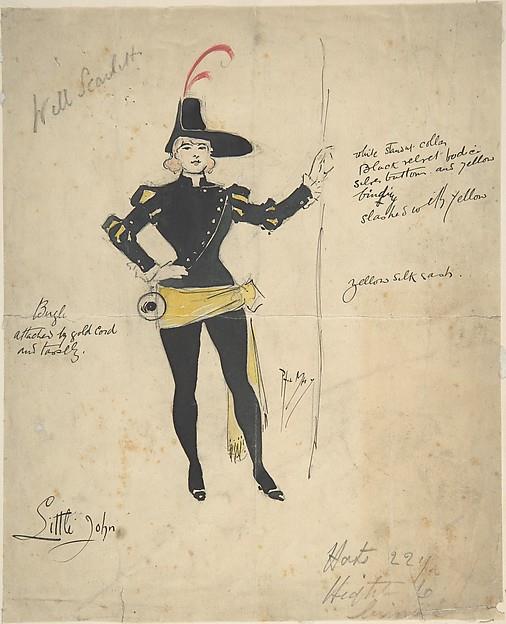 Will Scarlett
white stand collar
Black velvet bodice
silver buttons and yellow
binding
slashed with yellow
yellow silk sash.
Bugle
attached by gold cord
and tassels.
Phil May
Little John
Hats 22
Height